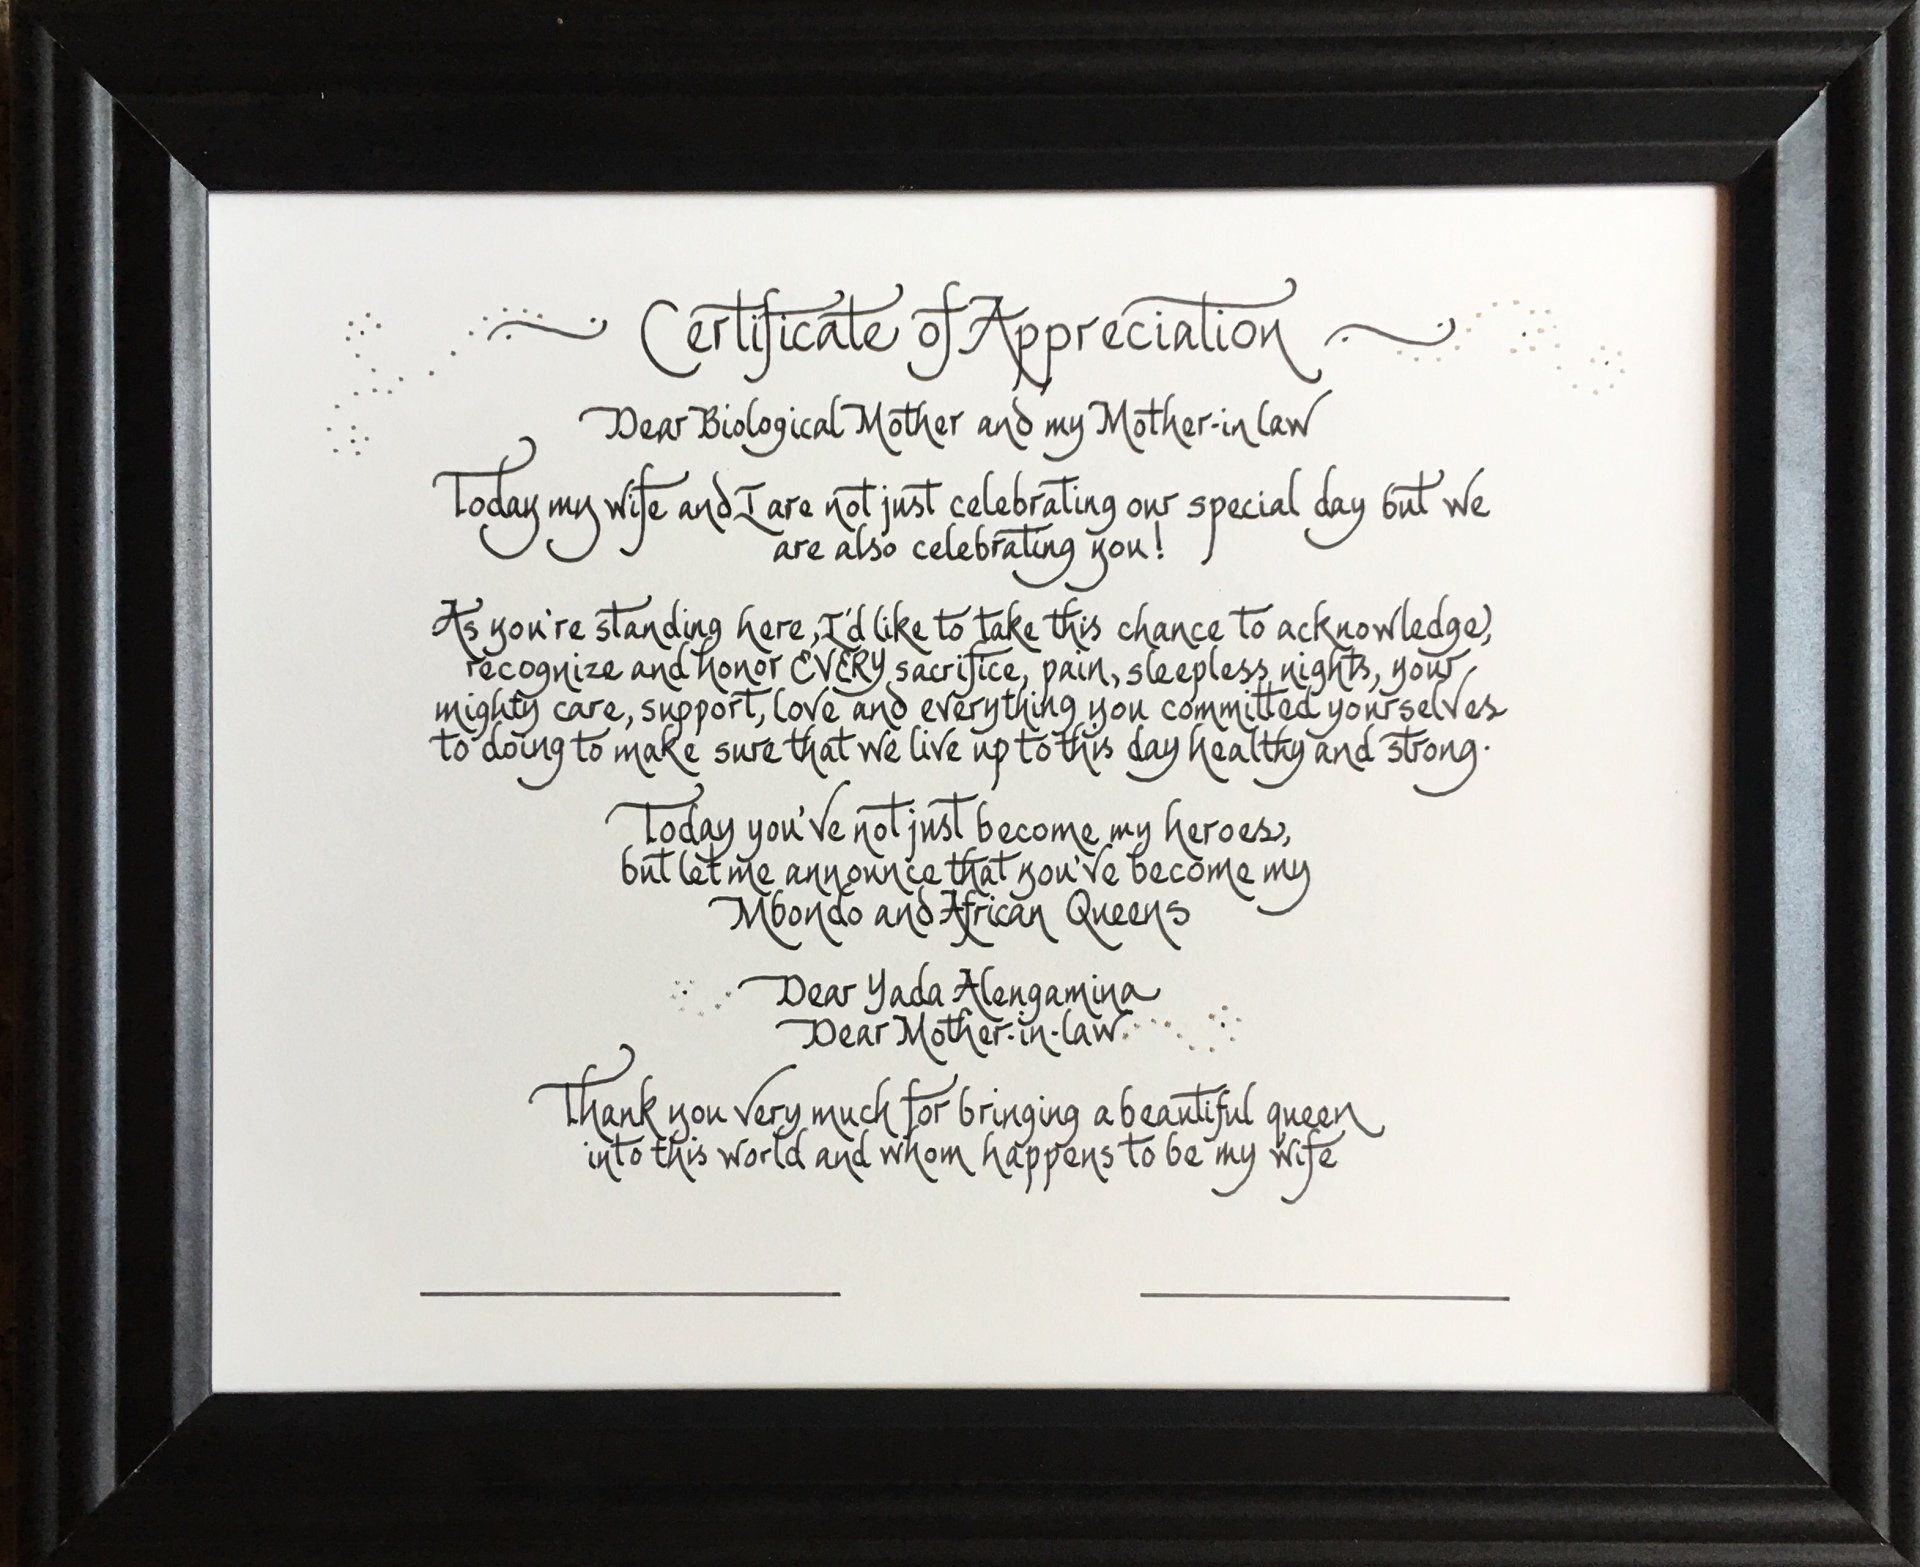 Certificate of Appreciation
Dear Biological Mother and my Mother-in law
Today my wife and I are not just celebrating our special day but we
are also celebrating you!
As you're standing here, I'd like to take this chance to acknowledge,
recognize and honor EVERY sacrifice, pain, sleepless nights, your
mighty care, support, love and everything you committed yourselves
to doing to make sure that we live up to this day healthy and strong.
Today you've not just become my heroes,
but let me announce that you've become my
Mbondo and African Queens
Dear Yada Alengamina
Dear Mother-in-law
Thank you very much for bringing a beautiful queen
into this world and whom happens to be my wife